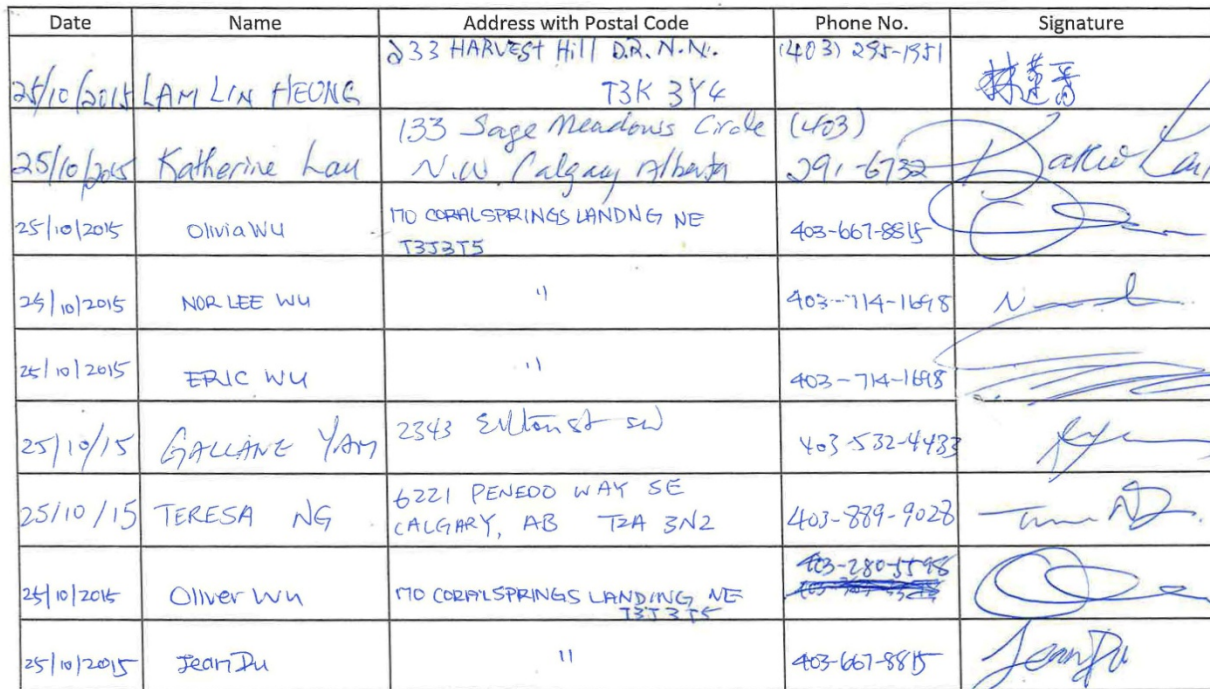 Date Name Address with Postal Code Phone No. Signature
25/10/2015 LAM LIN HEONG 233 HARVEST Hill D.R. N.W. (403) 295-1951 林蓮香
T3K 3Y4
25/10/2015 Katherine Lau 133 Sage Meadows Circle (403)
N.W Calgary Alberta 291-6732 Kathie Lau
25/10/2015 Olivia WU 170 CORALSPRINGS LANDNG NE 403-667-8815
T3J3J5
25/10/2015 NOR LEE WU " 403-714-1698
25/10/2015 ERIC WU " 403-714-1698
25/10/15 YAM 2343 St SW 403-532-4433
25/10/15 TERESA NG 6221 PENEDO WAY SE
CALGARY, AB T2A 3N2 403-889-9028
25/10/2015 Oliver Wu 170 CORALSPRINGS LANDING NE 403-280-5598
T3J 3J5
25/10/2015 Jean Du " 403-667-8815 Jean Du